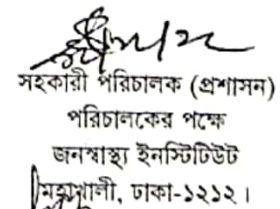 সহকারী পরিচালক (প্রশাসন)
পরিচালকের পক্ষে
জনস্বাস্থ্য ইনস্টিটিউট
মহাখালী, ঢাকা-১২১২।